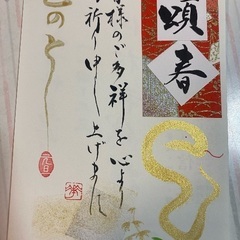 頌春
皆様のご多祥を心より
お祈り申し上げます
巳のとし
元旦